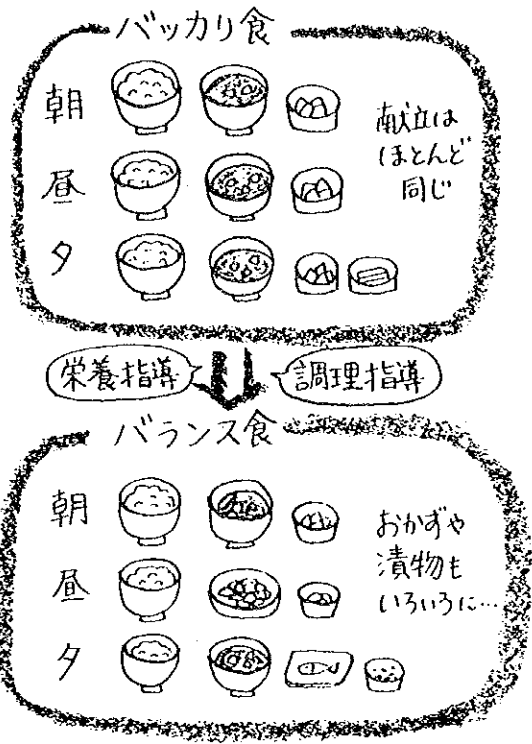 バッカリ食
朝
昼
夕
献立は
ほとんど
同じ
栄養指導
調理指導
バランス食
朝
昼
夕
おかずや
漬物も
いろいろに…